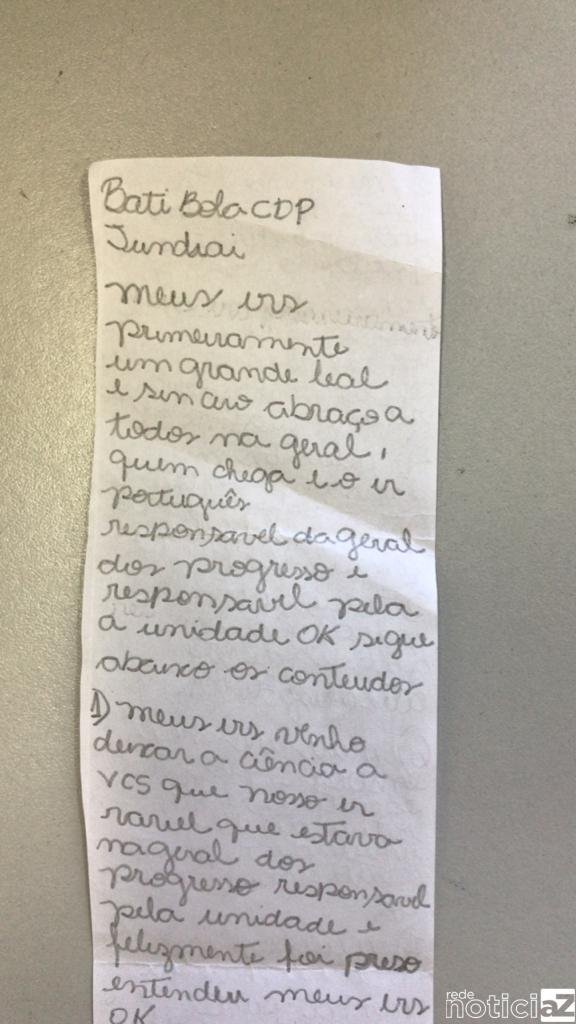 Bati Bola CDP
Jundiai
meus irs
primeiramente
um grande leal
e sincero abraço a
todos na geral,
quem chega é o ir
português
responsavel da geral
dos progresso e
responsavel pela
a unidade OK segue
abaixo os conteudos
1) meus irs venho
deixar a ciência a
VCS que nosso ir
que estava
na geral dos
progresso responsavel
pela unidade e
felizmente foi preso
entendeu meus irs
OK
rede
noticiaZ